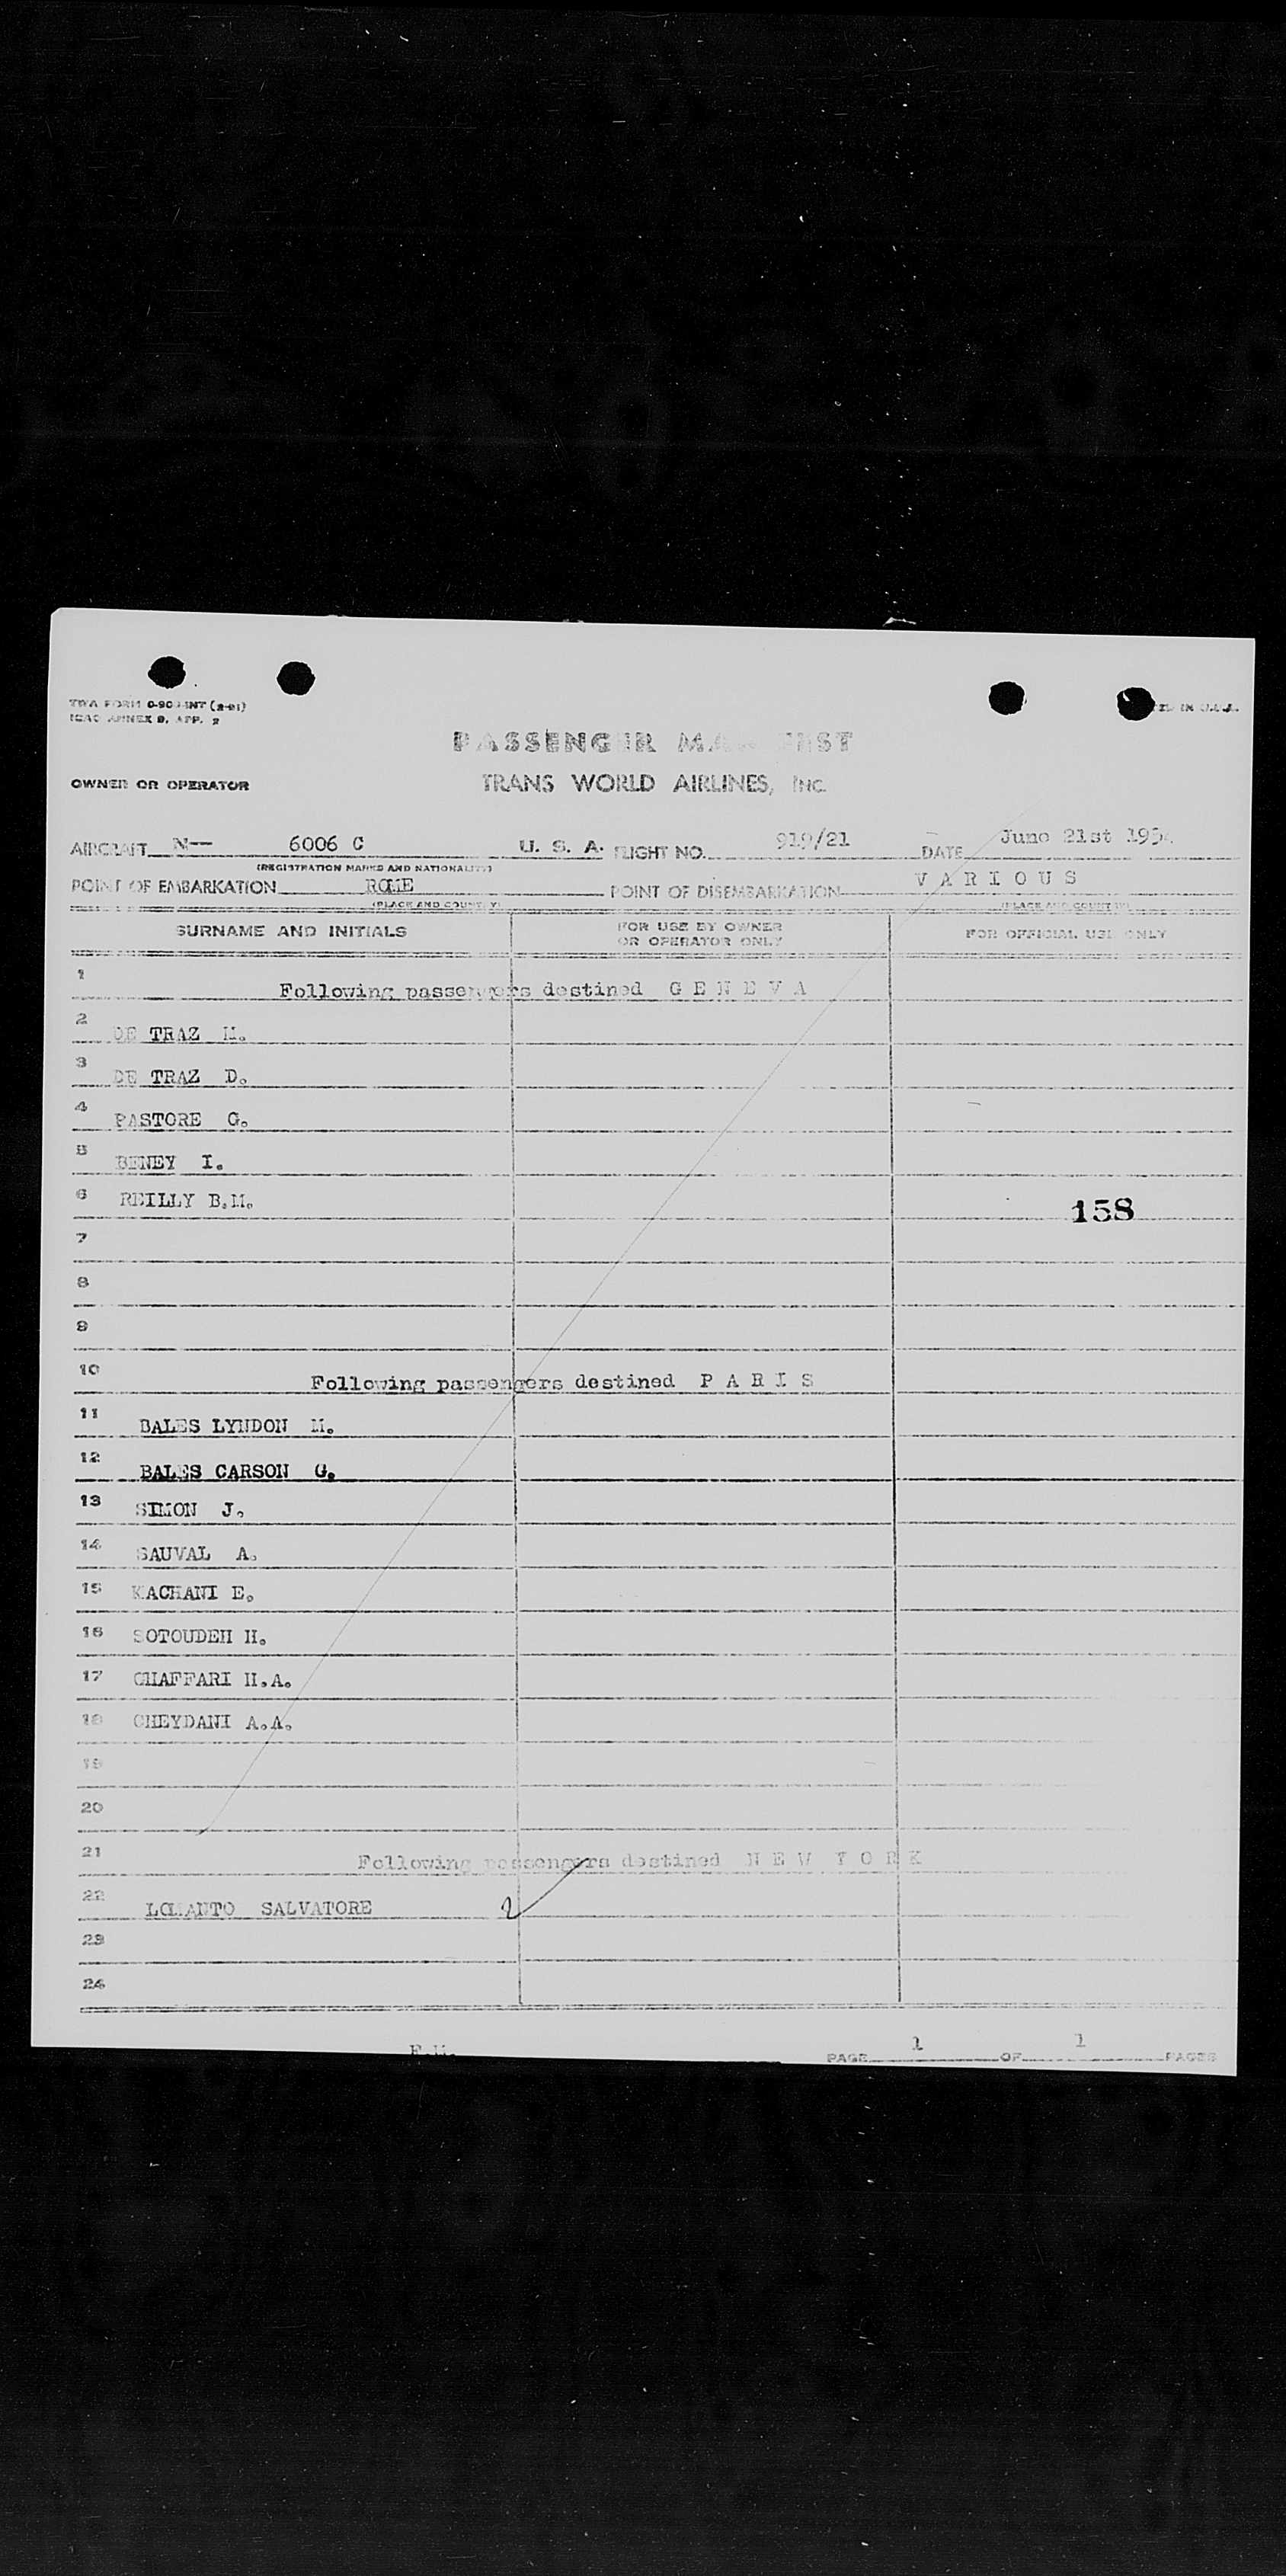 TWA FORM 0-909-INT (2-51)
ICAO ANNEX 9, APP. 2
IN U.S.A.
PASSENGER MANIFEST
OWNER OR OPERATOR TRANS WORLD AIRLINES, INC.
AIRCRAFT N-- 6006 C U. S. A. FLIGHT NO. 919/21 DATE June 21st 195
(REGISTRATION MARKS AND NATIONALITY)
POINT OF EMBARKATION ROME POINT OF DISEMBARKATION V A R I O U S
(PLACE AND COUNTRY) (PLACE AND COUNTRY)
SURNAME AND INITIALS FOR USE BY OWNER OR OPERATOR ONLY FOR OFFICIAL USE ONLY
1 Following passengers destined G E N E V A
2 DE TRAZ M.
3 DE TRAZ D.
4 PASTORE G.
5 BENEY I.
6 REILLY B.M. 158
7
8
9
10 Following passengers destined P A R I S
11 BALES LYNDON M.
12 BALES CARSON G.
13 SIMON J.
14 SAUVAL A.
15 KACHANI E.
16 SOTOUDEH H.
17 GHAFFARI H.A.
18 GHEYDANI A.A.
19
20
21 Following passengers destined N E W Y O R K
22 LOMANTO SALVATORE 2
23
24
PAGE 1 OF 1 PAGES